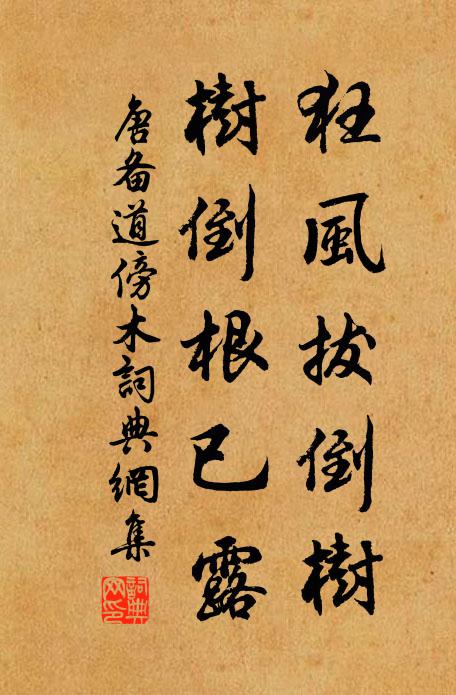 狂風拔倒樹
樹倒根已露
唐备道傍木詞典網集
詞典网印